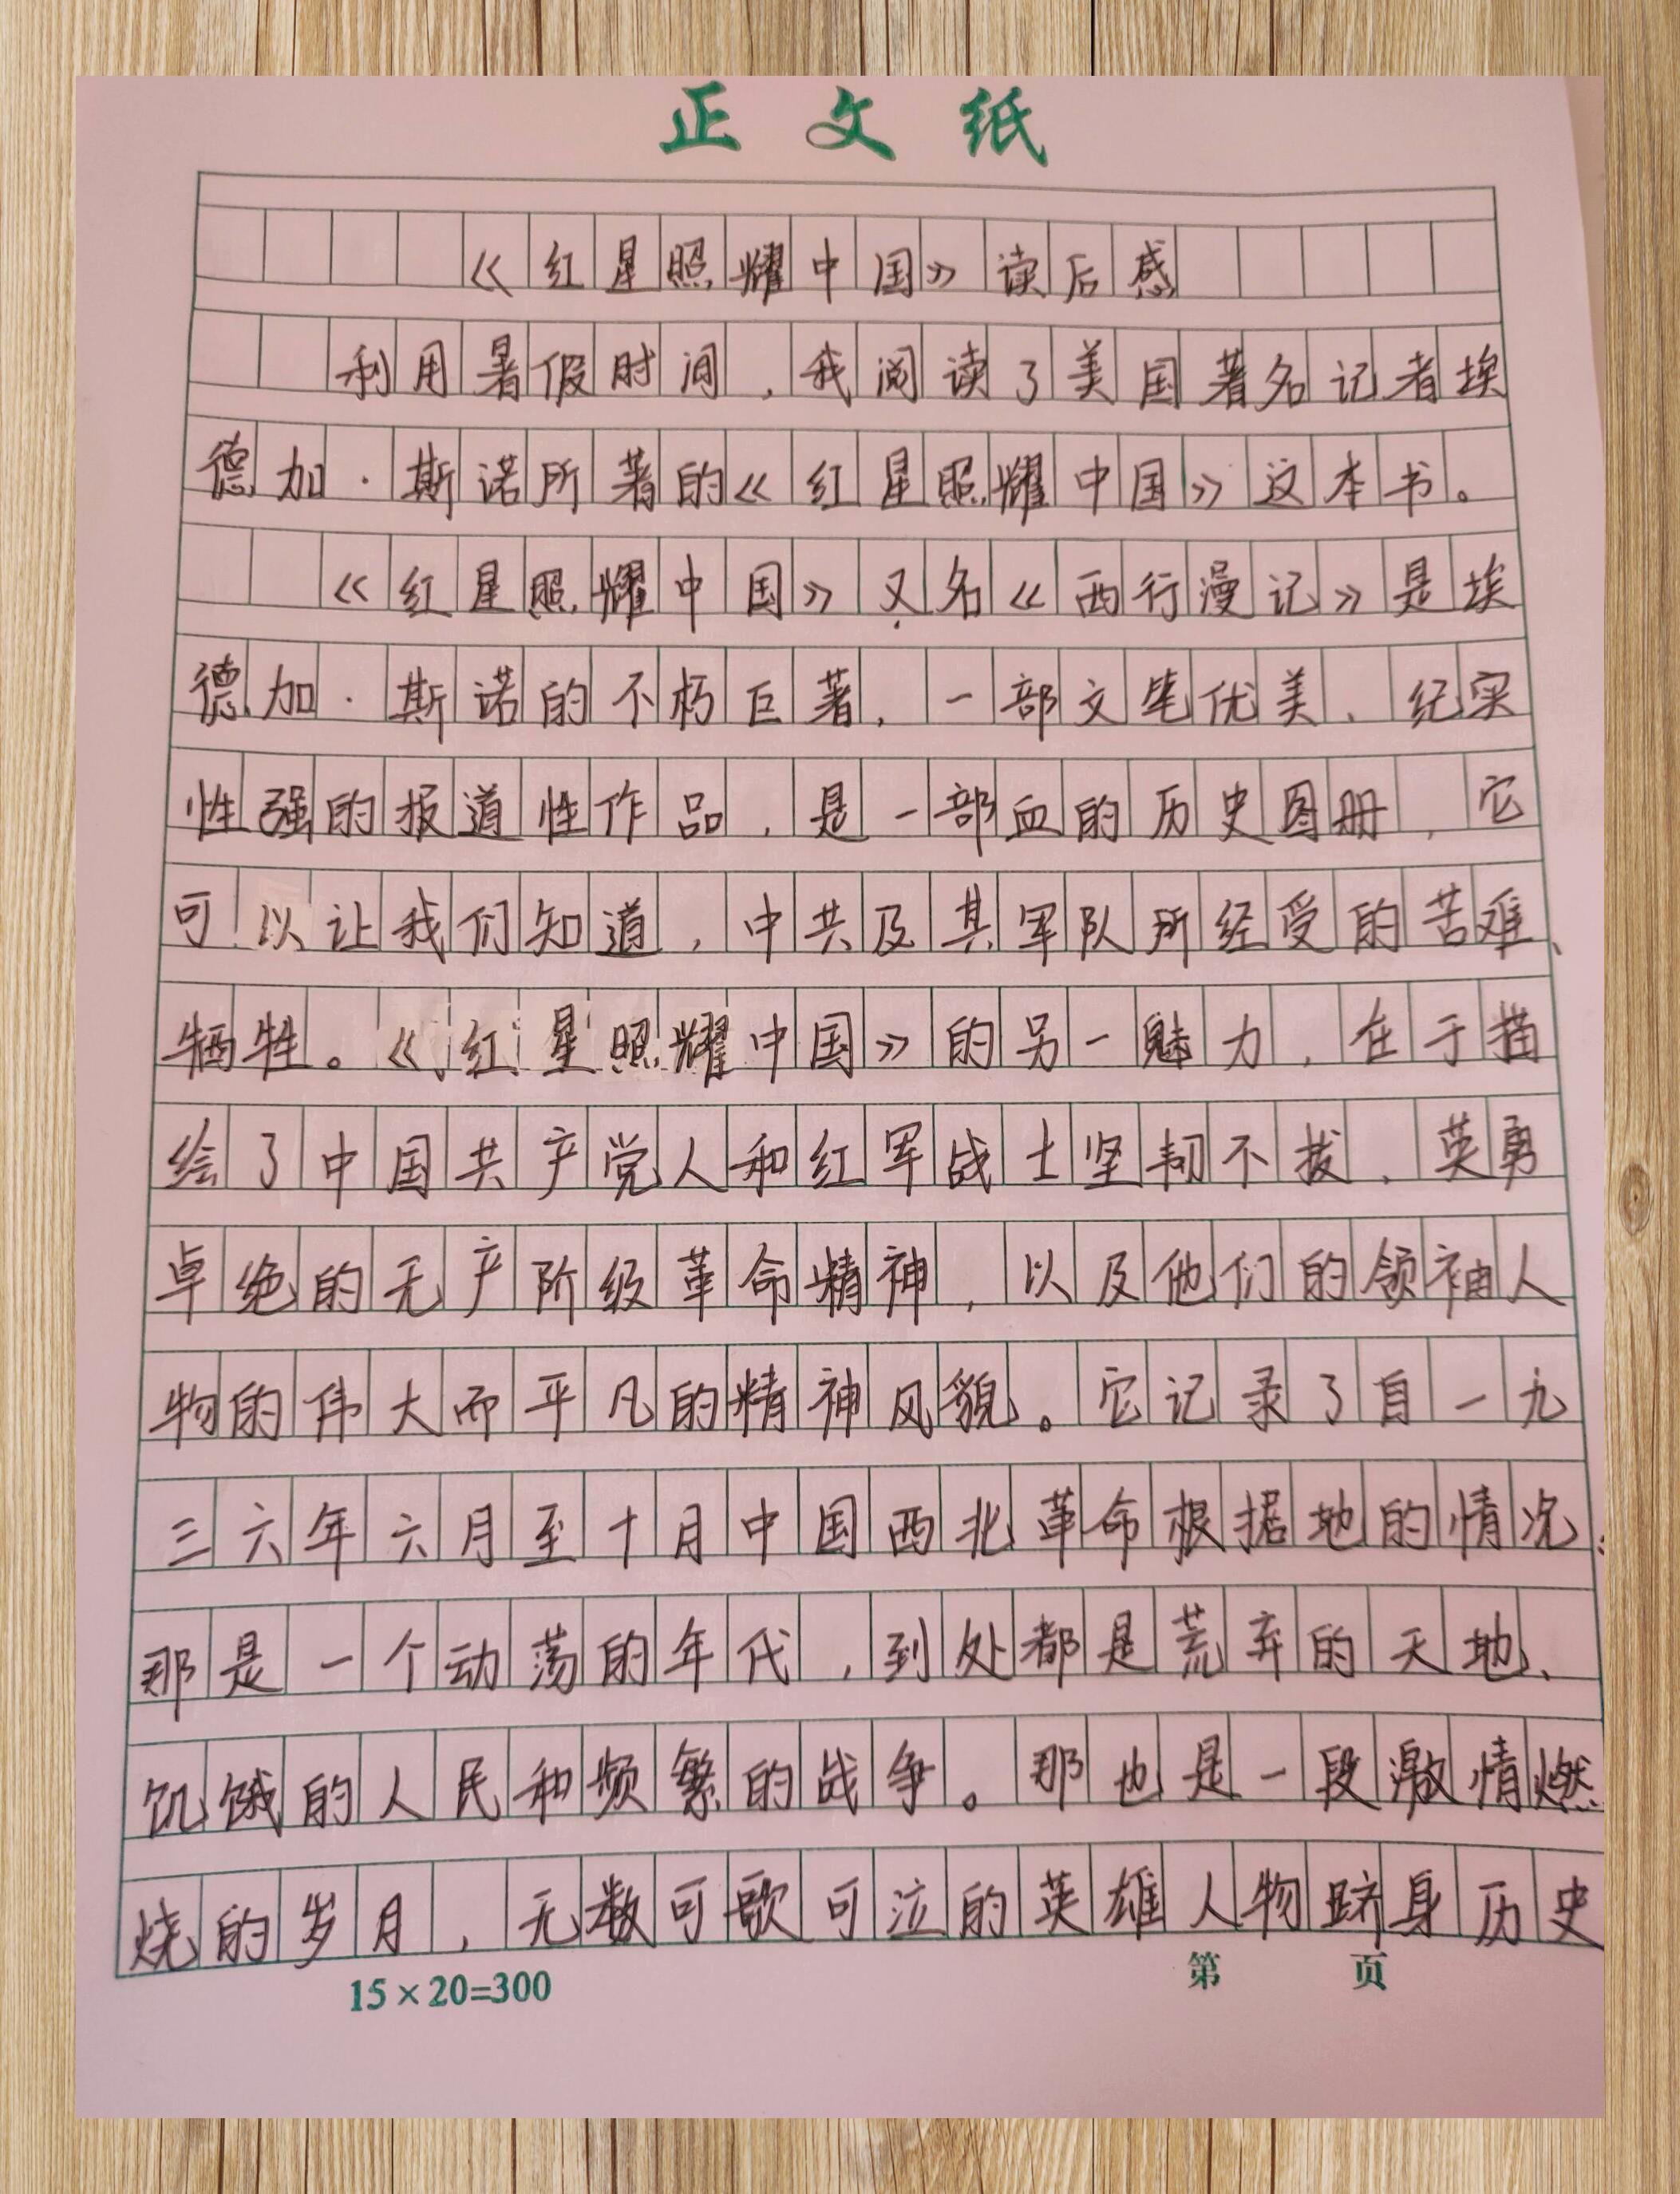 正文纸
《红星照耀中国》读后感
利用暑假时间，我阅读了美国著名记者埃
德加·斯诺所著的《红星照耀中国》这本书。
《红星照耀中国》又名《西行漫记》是埃
德加·斯诺的不朽巨著，一部文笔优美、纪实
性强的报道性作品，是一部血的历史图册，它
可以让我们知道，中共及其军队所经受的苦难、
牺牲。《红星照耀中国》的另一魅力，在于描
绘了中国共产党人和红军战士坚韧不拔、英勇
卓绝的无产阶级革命精神，以及他们的领袖人
物的伟大而平凡的精神风貌。它记录了自一九
三六年六月至十月中国西北革命根据地的情况，
那是一个动荡的年代，到处都是荒弃的天地、
饥饿的人民和频繁的战争。那也是一段激情燃
烧的岁月，无数可歌可泣的英雄人物跻身历史
15×20=300 第 页